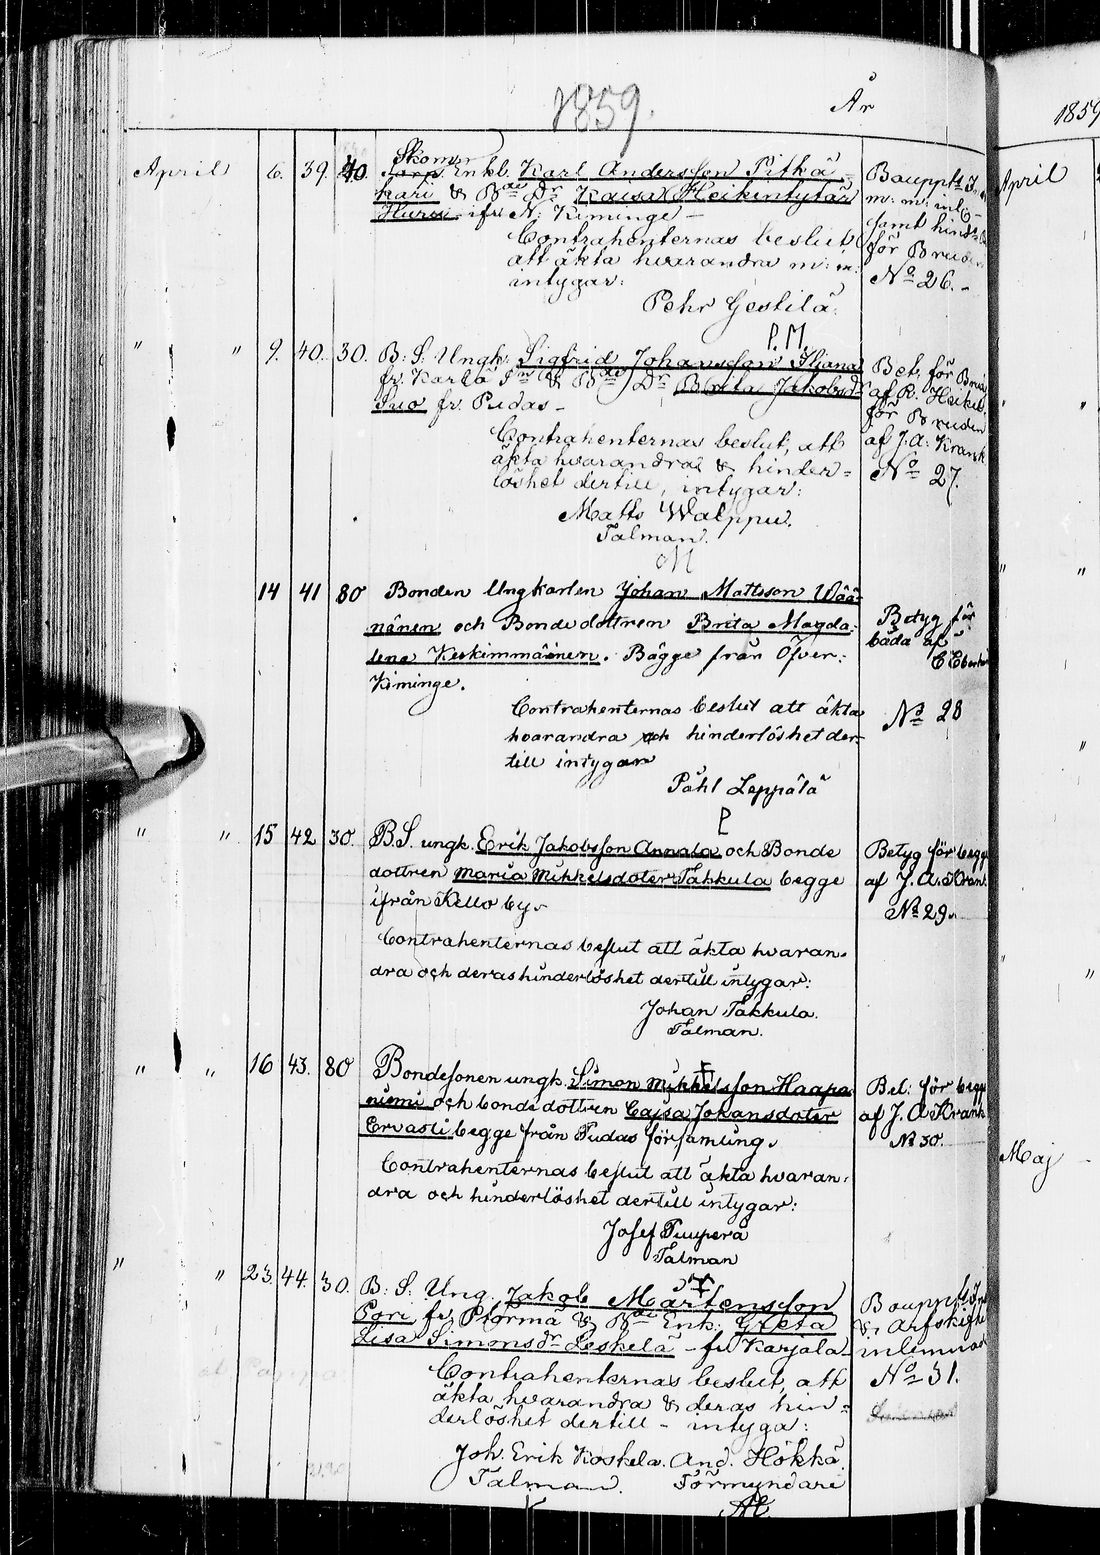 1859.
År
April 6. 39. 40. Skom. Enkl. Karl Andersson Pitkä-
kari & B de Dr Kaisa Heikintytär
Huru ifr. N: Kiminge –
Contrahenternas beslut
att äkta hvarandra m: m:
intygar:
Pehr Gestilä.
P. M.
Bouppts
m: m: inl:
samt hind
för Bruden
No 26. –
" " 9. 40. 30. B: S: Ungk: Sigfrid Johansson Ikana
fr. Karla & B de Dr Brita Jakobsdr
Suo fr. Pudas –
Contrahenternas beslut, att
äkta hvarandra & hinder=
löshet dertill, intygar:
Matts Walppu.
Talman.
M
Bet. för
af R. Heikel
för Bruden
af J. A. Krank
No 27.
14 41 80 Bonden Ungkarlen Johan Mattsson Wää-
nänen och Bondedottren Brita Magda-
lena Keskimmäinen. Bägge från Öfver-
Kiminge.
Contrahenternas beslut att äkta
hvarandra och hinderlöshet der-
till intygar
Påhl Leppälä
P
Betyg för
båda af
C
No 28
" " 15 42 30. B.S. ungk. Erik Jakobsson Annala och Bonde
dottren Maria Mikkelsdoter Takkula begge
ifrån Kello by.
Contrahenternas beslut att äkta hvaran-
dra och deras hinderlöshet dertill intygar:
Johan Takkula.
Talman.
Betyg för begge
af J. A. Krank.
No 29.
" " 16 43. 80 Bondesonen ungk. Simon Mikkelsson Haapa-
niemi och bondedottren Cajsa Johansdoter
Ervasti begge från Pudas församling.
Contrahenternas beslut att äkta hvaran-
dra och hinderlöshet dertill intygar:
Josef Puuperä
Talman
Bet: för begge
af J. A. Krank
No 30.
" " 23. 44. 30. B: S: Ung. Jakob Mårtensson
Pori fr. & B de Enk: Greta
Lisa Simonsdr Leskelä – fr. Karjala –
Contrahenternas beslut, att
äkta hvarandra & deras hin=
derlöshet dertill – intyga:
Joh. Erik Koskela. And. Hökkä.
Talman. Förmyndare
Bouppts
& Arfskifte
inlemnad
No 31.
1859
April
Maj